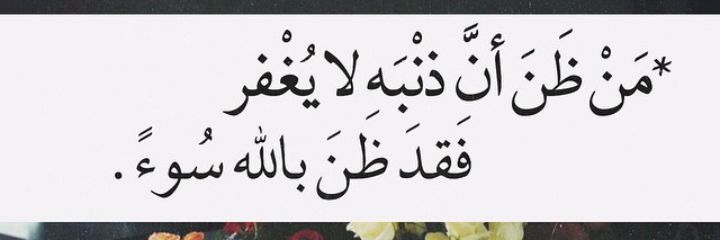 *مَنْ ظَنَ أنَّ ذنْبَهِ لا يُغْفر
فَقدَ ظَنَ بالله سُوءً .